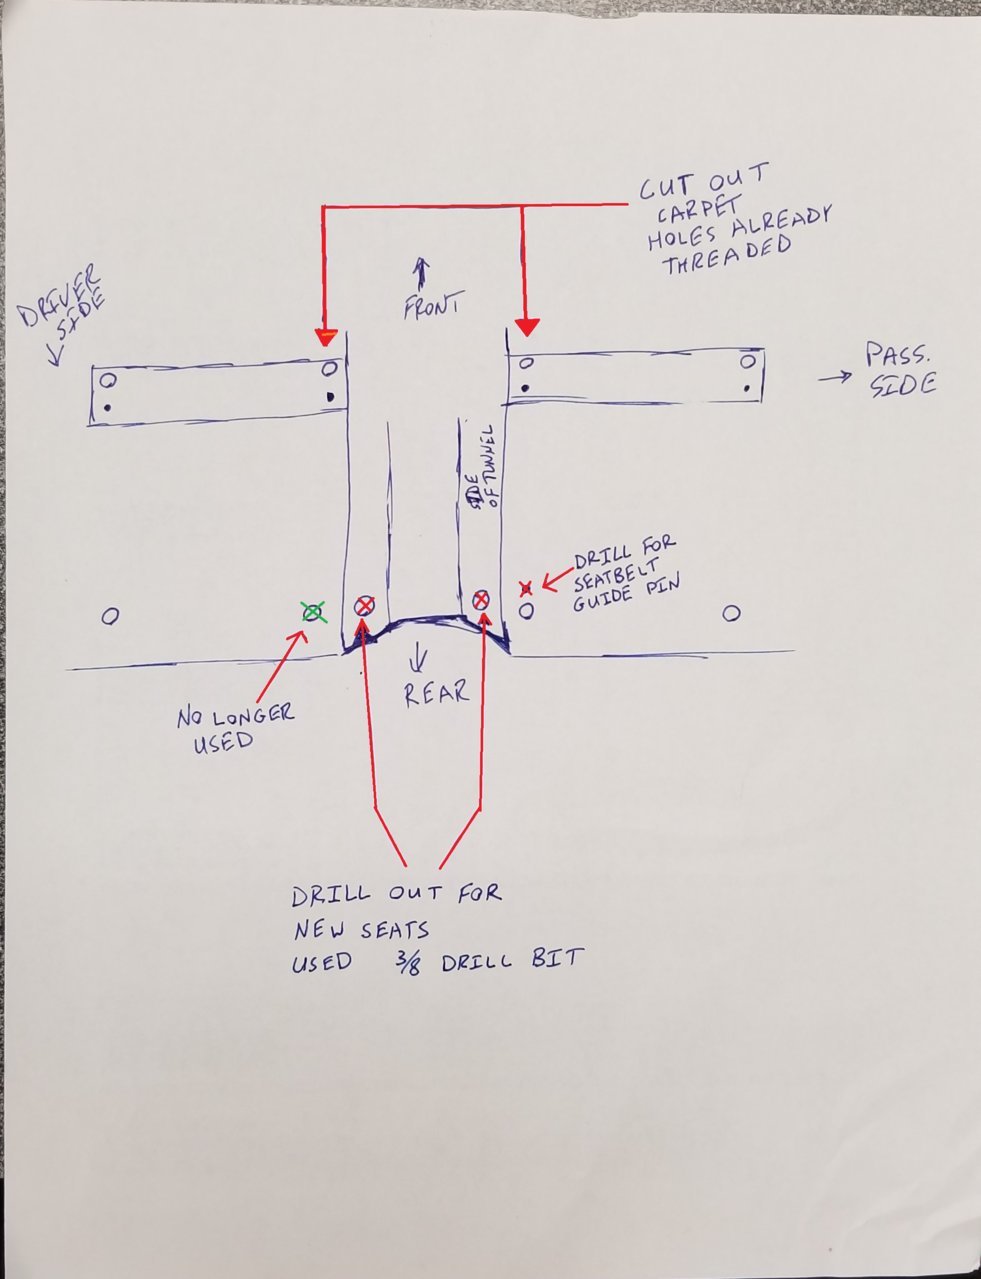 CUT OUT
CARPET
HOLES ALREADY
THREADED
DRIVER
SIDE
FRONT
PASS.
SIDE
SIDE
OF TUNNEL
DRILL FOR
SEATBELT
GUIDE PIN
NO LONGER
USED
REAR
DRILL OUT FOR
NEW SEATS
USED 3/8 DRILL BIT